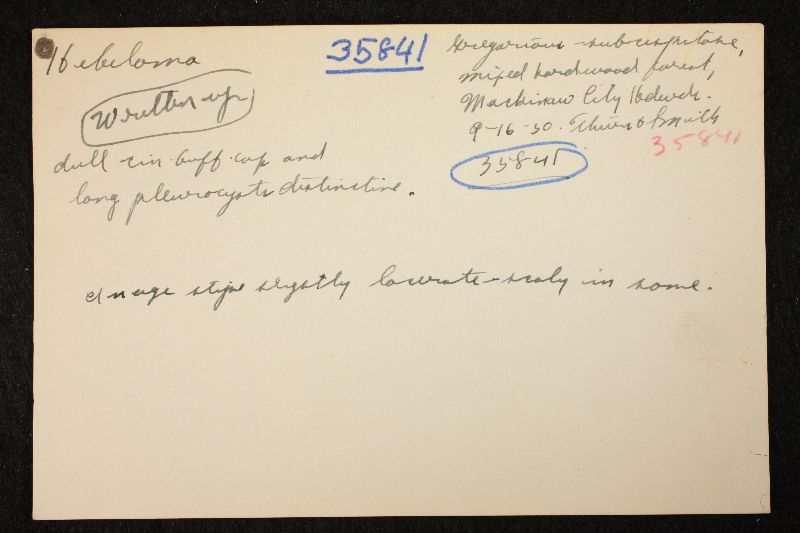 Hebeloma
35841
Written up
Gregarious - subcespitose,
mixed hardwood forest,
Mackinaw City Hdwds.
9-16-50. Thiers & Smith
35841
35841
dull cin. buff cap and
long pleurocysts distinctive.
In age stipe slightly lacerate-scaly in some.